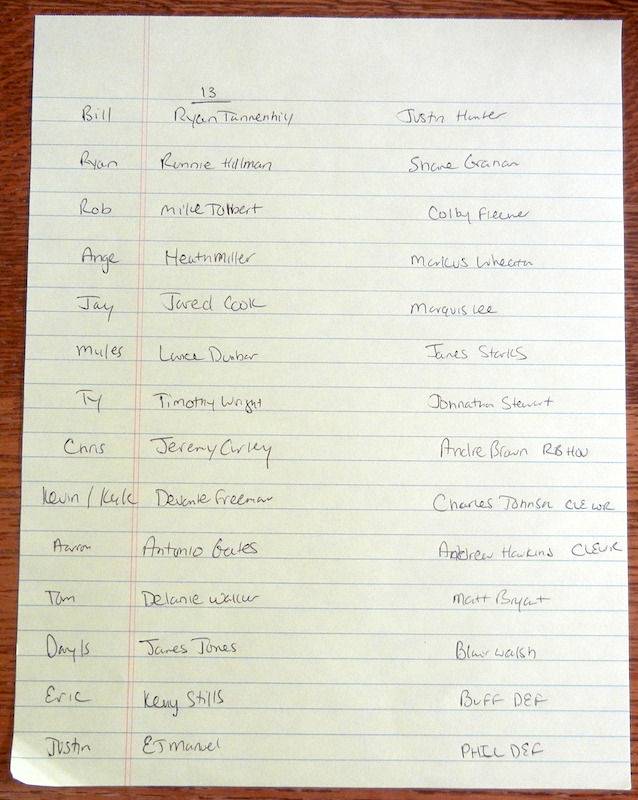 13
Bill Ryan Tannenhill Justin Hunter
Ryan Ronnie Hillman Shane Graham
Rob Mike Tolbert Colby Fleener
Ange Heath Miller Markus Wheaton
Jay Jared Cook Marquis Lee
Myles Lance Dunbar James Starks
Ty Timothy Wright Johnathan Stewart
Chris Jeremy Curley Andre Brown RB HOU
Kevin / Kyle Devante Freeman Charles Johnson CLE WR
Aaron Antonio Gates Andrew Hawkins CLE WR
Tom Delanie Walker Matt Bryant
James Jones Blair Walsh
Eric Kenny Stills BUFF DEF
Justin EJ Manuel PHIL DEF